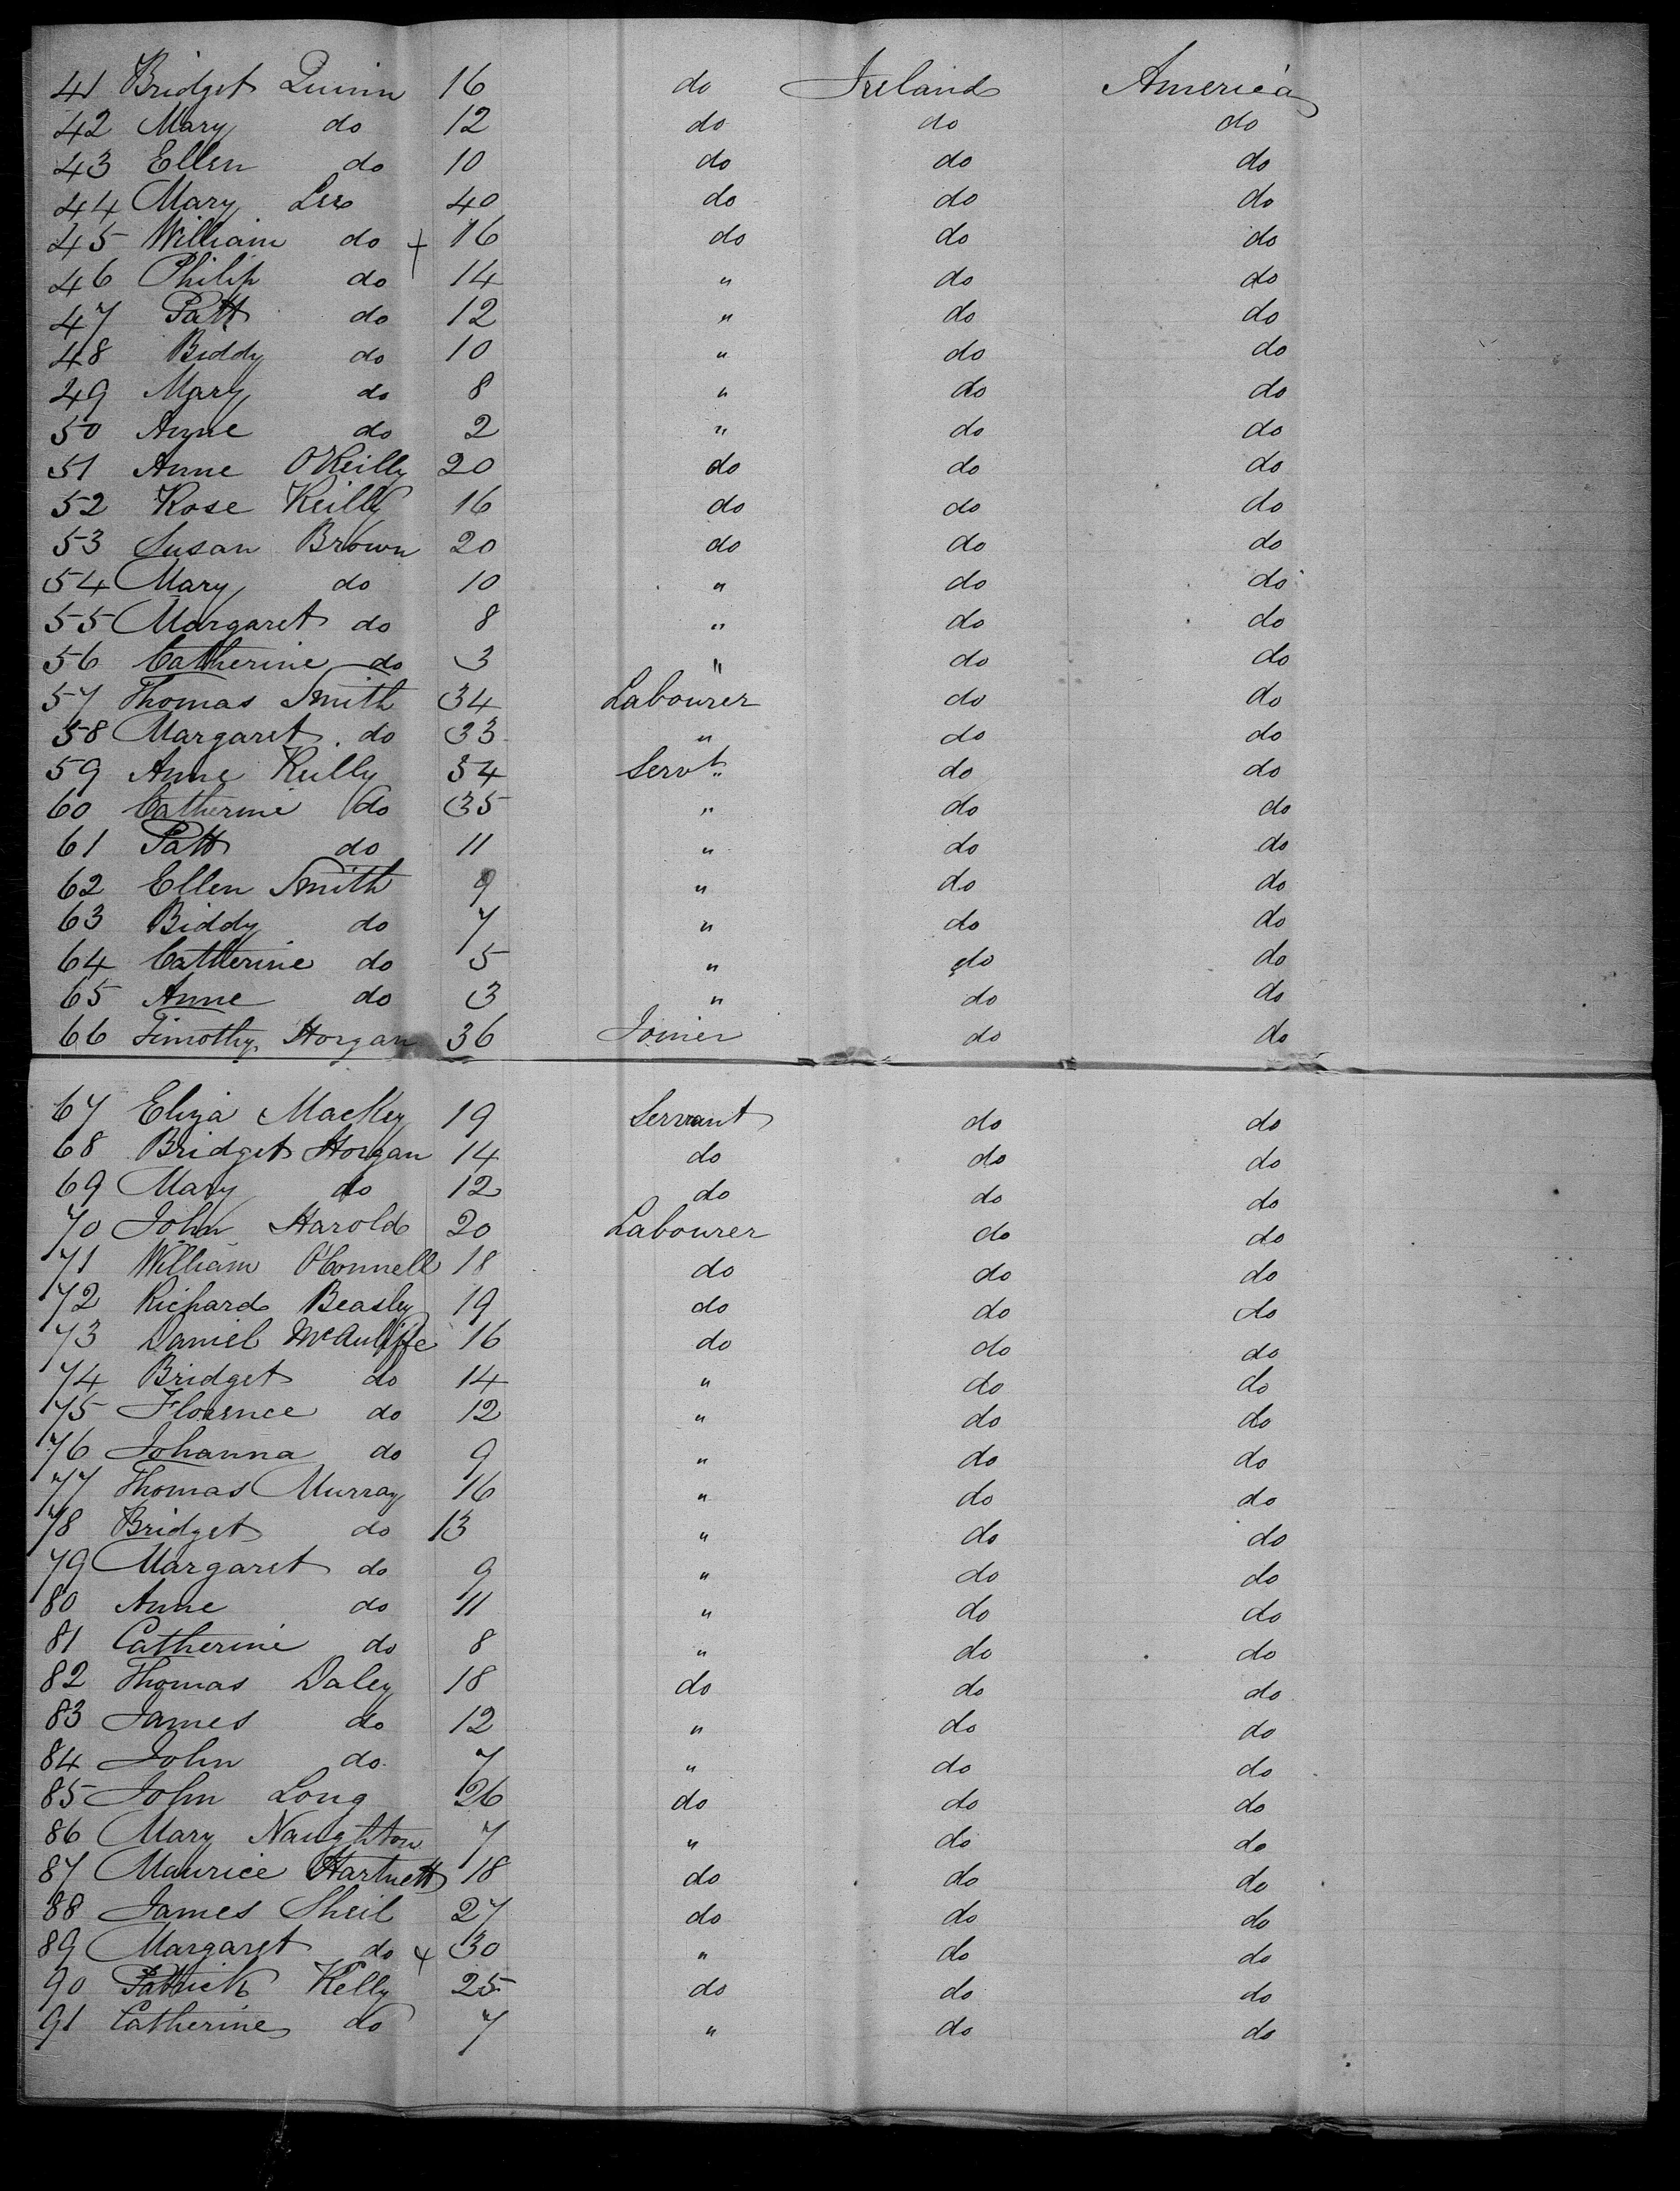 41 Bridget Quinn 16 do Ireland America
42 Mary do 12 do do do
43 Ellen do 10 do do do
44 Mary Lee 40 do do do
45 William do + 16 do do do
46 Philip do 14 " do do
47 Patt do 12 " do do
48 Biddy do 10 " do do
49 Mary do 8 " do do
50 Anne do 2 " do do
51 Anne O'Reilly 20 do do do
52 Rose Reilly 16 do do do
53 Susan Brown 20 do do do
54 Mary do 10 " do do
55 Margaret do 8 " do do
56 Catherine do 3 " do do
57 Thomas Smith 34 Labourer do do
58 Margaret do 33 " do do
59 Anne Reilly 54 Servt. do do
60 Catherine do 35 " do do
61 Patt do 11 " do do
62 Ellen Smith 9 " do do
63 Biddy do 7 " do do
64 Catherine do 5 " do do
65 Anne do 3 " do do
66 Timothy Horgan 36 Joiner do do
67 Eliza MacKey 19 Servant do do
68 Bridget Horgan 14 do do do
69 Mary do 12 do do do
70 John Harold 20 Labourer do do
71 William O'Connell 18 do do do
72 Richard Beasley 19 do do do
73 Daniel McAuliffe 16 do do do
74 Bridget do 14 " do do
75 Florence do 12 " do do
76 Johanna do 9 " do do
77 Thomas Murray 16 " do do
78 Bridget do 13 " do do
79 Margaret do 9 " do do
80 Anne do 11 " do do
81 Catherine do 8 " do do
82 Thomas Daley 18 do do do
83 James do 12 " do do
84 John do 7 " do do
85 John Long 26 do do do
86 Mary Naughton 7 " do do
87 Maurice Hartnett 18 do do do
88 James Sheil 27 do do do
89 Margaret do + 30 " do do
90 Patrick Kelly 25 do do do
91 Catherine do 7 " do do